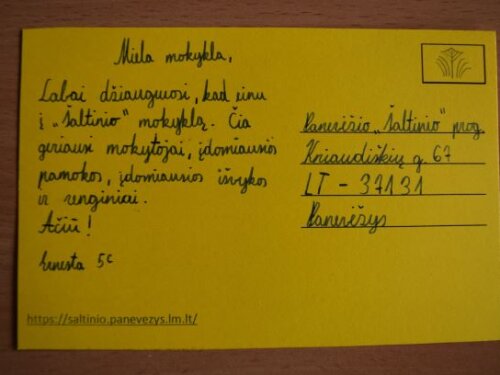 Miela mokykla,
Labai džiaugiuosi, kad einu
į „Šaltinio" mokyklą. Čia
geriausi mokytojai, įdomiausios
pamokos, įdomiausios išvykos
ir renginiai.
Ačiū!
Ernesta 5c
Panevėžio „Šaltinio" prog.
Kniaudiškių g. 67
LT - 37131
Panevėžys
https://saltinio.panevezys.lm.lt/